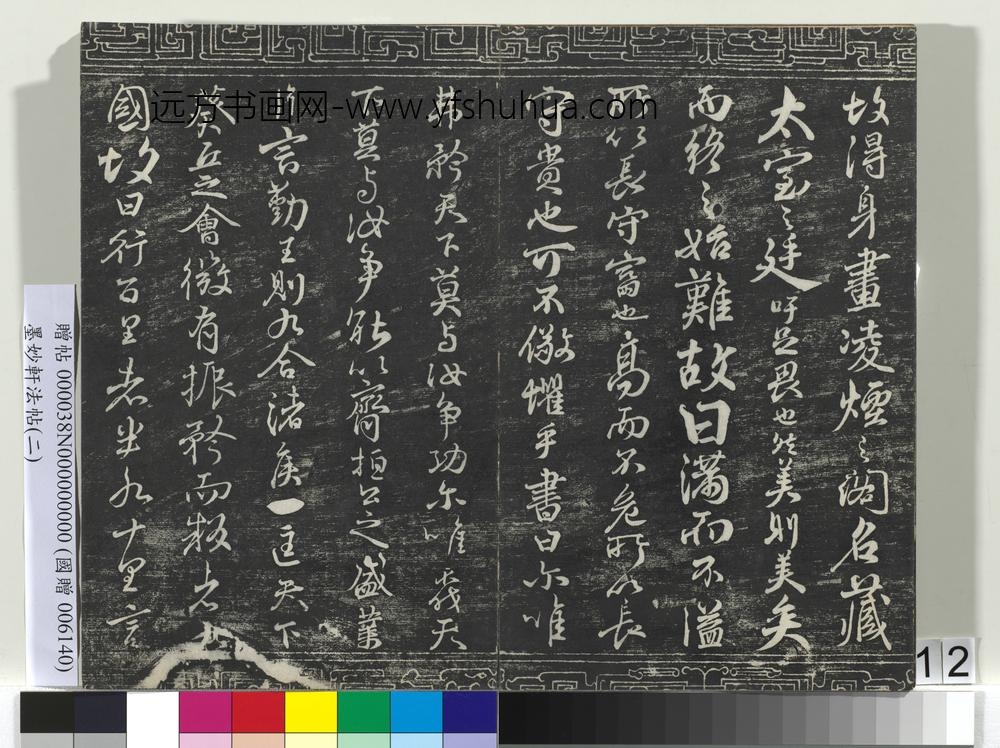 故得身畫凌煙之閣名藏
太室之廷吁足畏也然美則美矣
而終之始難故曰滿而不溢
所以長守富也高而不危所以長
守貴也可不儆懼乎書曰尔唯
弗矜天下莫与汝争功尔唯弗伐天
下莫与汝争能以齊桓公之盛業
片言勤王則九合諸侯一匡天下
葵丘之會微有振矜而叛者
國故曰行百里者半九十里言
远方书画网-www.yfshuhua.com
贈帖 000038N000000000 (國贈 006140)
墨妙軒法帖(二)
12